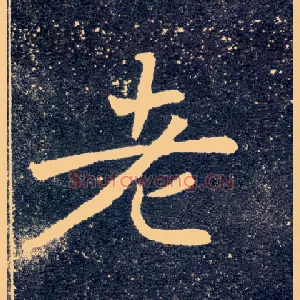 老
Shufawang.CN